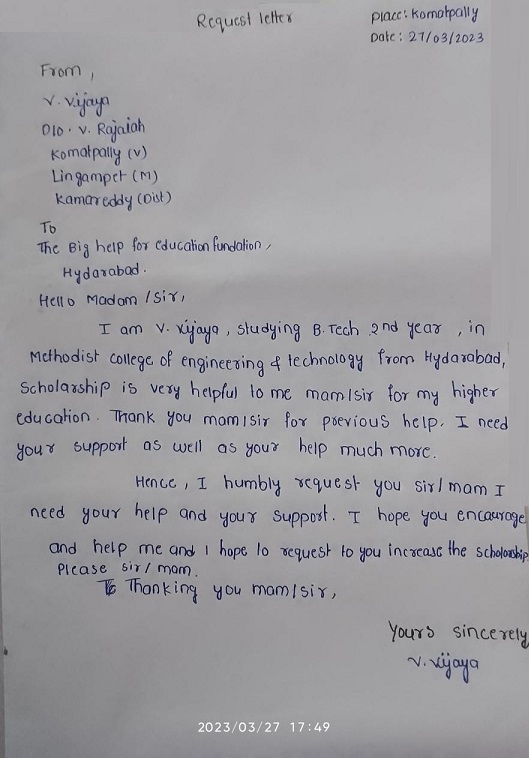 Request letter
Place: Komatpally
Date: 27/03/2023
From,
V. Vijaya
D/O. V. Rajaiah
Komatpally (V)
Lingampet (M)
Kamareddy (Dist)
To
The Big help for education fundation,
Hydarabad.
Hello Madam / Sir,
I am V. Vijaya, studying B.Tech 2nd year, in
Methodist college of engineering & technology from Hydarabad,
Scholarship is very helpful to me mam/sir for my higher
education. Thank you mam/sir for previous help. I need
your support as well as your help much more.
Hence, I humbly request you sir/mam I
need your help and your support. I hope you encaurage
and help me and I hope to request to you increase the scholarship
Please sir/mam.
Thanking you mam/sir,
Yours sincerely
V. Vijaya
2023/03/27 17:49